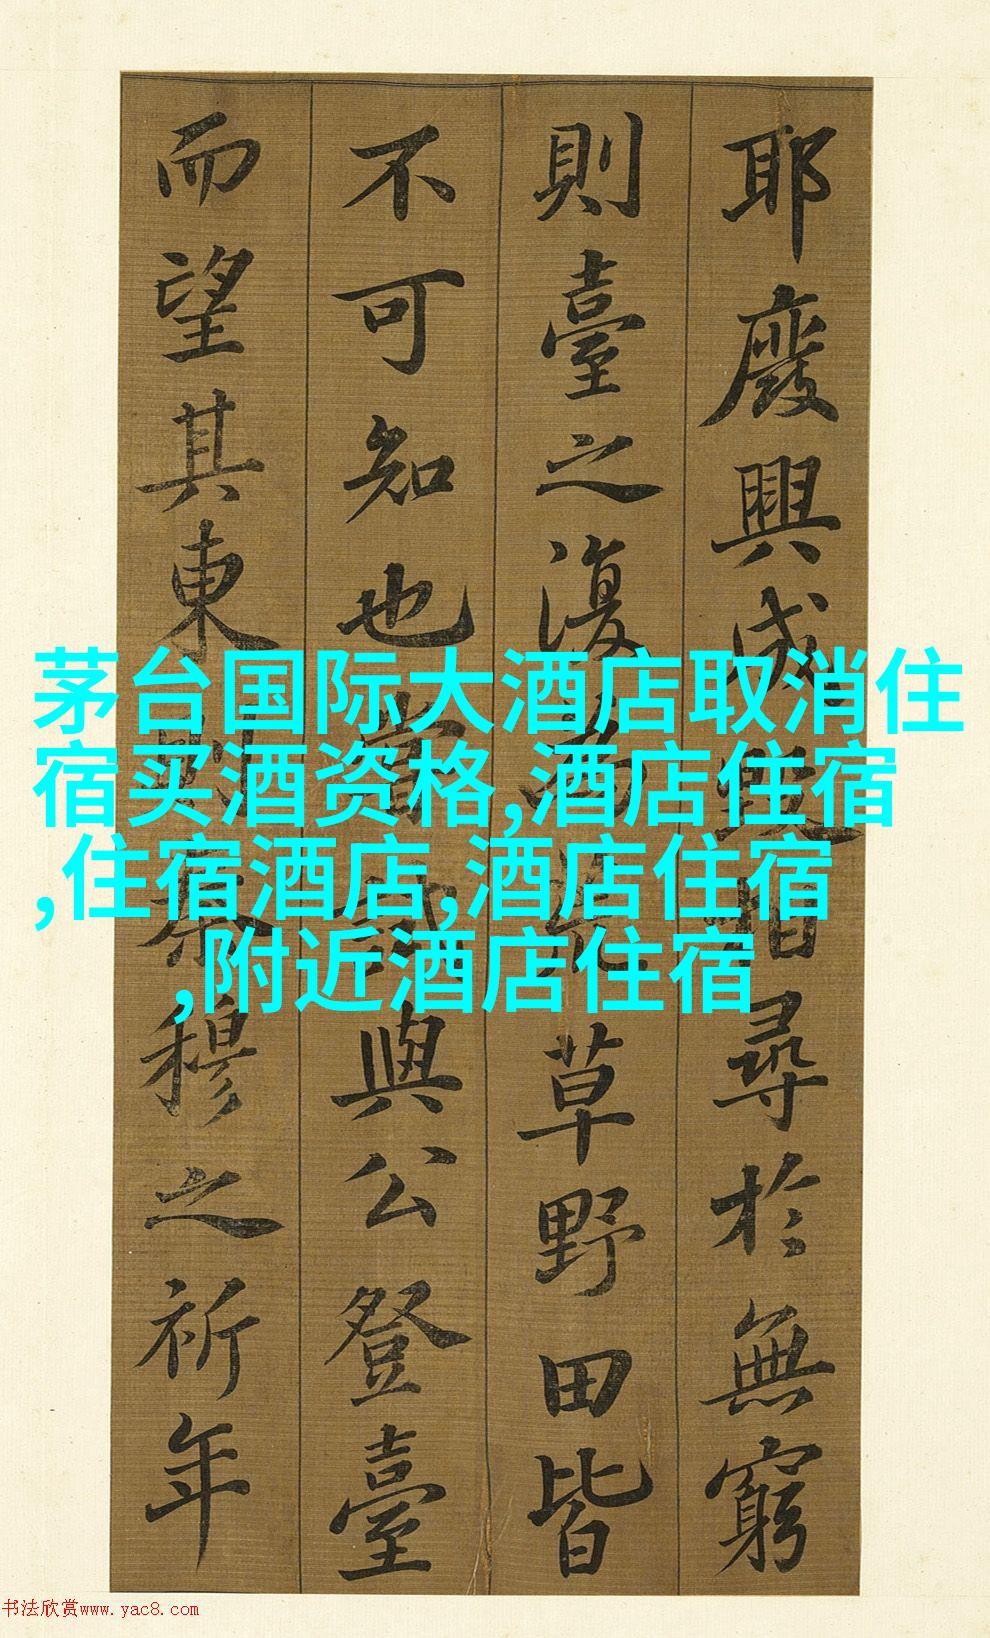 耶廢興成毀相尋於無窮
則臺之復為荒草野田皆
不可知也嘗試與公登臺
而望其東則秦穆之祈年
茅台国际大酒店取消住
宿买酒资格,酒店住宿
,住宿酒店,酒店住宿
,附近酒店住宿
书法欣赏www.yac8.com